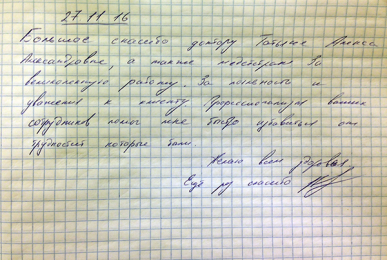 27 11 16
Большое спасибо доктору Александровне, а также медсёстрам за
великолепную работу. За полезность и
уважения к клиенту. Профессионализм ваших
сотрудников помог мне быстро избавиться от
трудностей которые были.
Желаю вам здоровья
Ещё раз спасибо